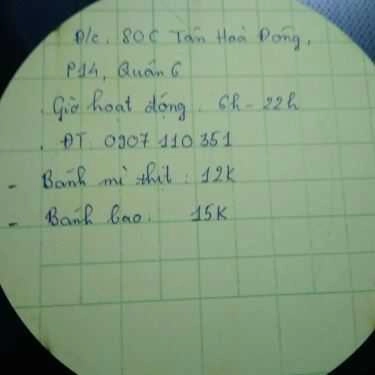 Đ/c. 80C Tân Hoà Đông,
P14, Quán 6
. Giờ hoạt động. 6h - 22h
. ĐT. 0907 110 351
- Bánh mì thịt: 12K
- Bánh bao. 15K